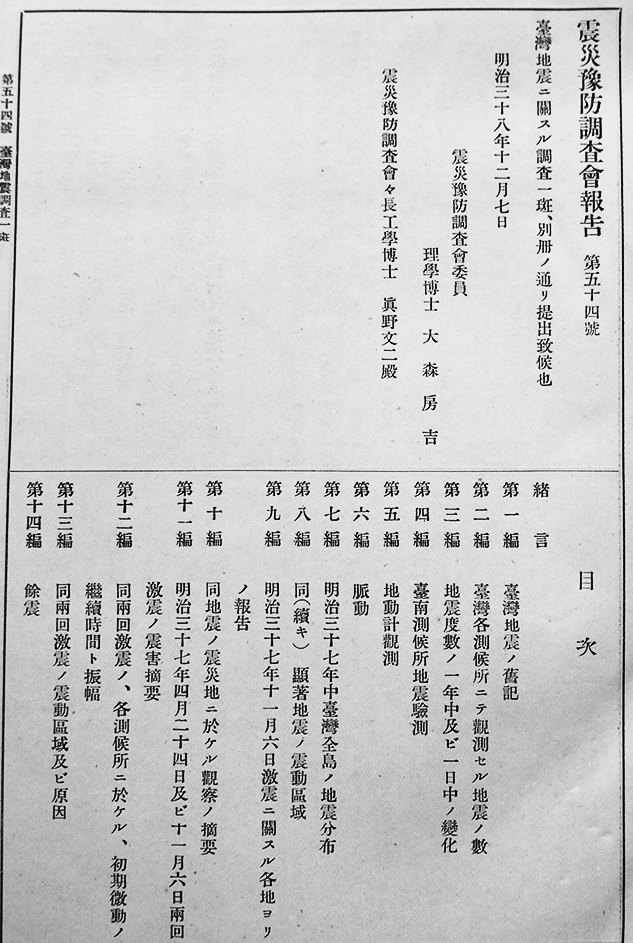 震災豫防調査會報告　第五十四號
臺灣地震ニ關スル調査一斑、別册ノ通リ提出致候也
明治三十八年十二月七日
震災豫防調査會委員
理學博士　大森房吉
震災豫防調査會々長工學博士　眞野文二殿
目次
緒言
第一編　臺灣地震ノ舊記
第二編　臺灣各測候所ニテ觀測セル地震ノ數
第三編　地震度數ノ一年中及ビ一日中ノ變化
第四編　臺南測候所地震驗測
第五編　地動計觀測
第六編　脈動
第七編　明治三十七年中臺灣全島ノ地震分布
第八編　同（續キ）　顯著地震ノ震動區域
第九編　明治三十七年十一月六日激震ニ關スル各地ヨリ
ノ報告
第十編　同地震ノ震災地ニ於ケル觀察ノ摘要
第十一編　明治三十七年四月二十四日及ビ十一月六日兩回
激震ノ震害摘要
第十二編　同兩回激震ノ、各測候所ニ於ケル、初期微動ノ
繼續時間ト振幅
第十三編　同兩回激震ノ震動區域及ビ原因
第十四編　餘震
第五十四號　臺灣地震調査一斑